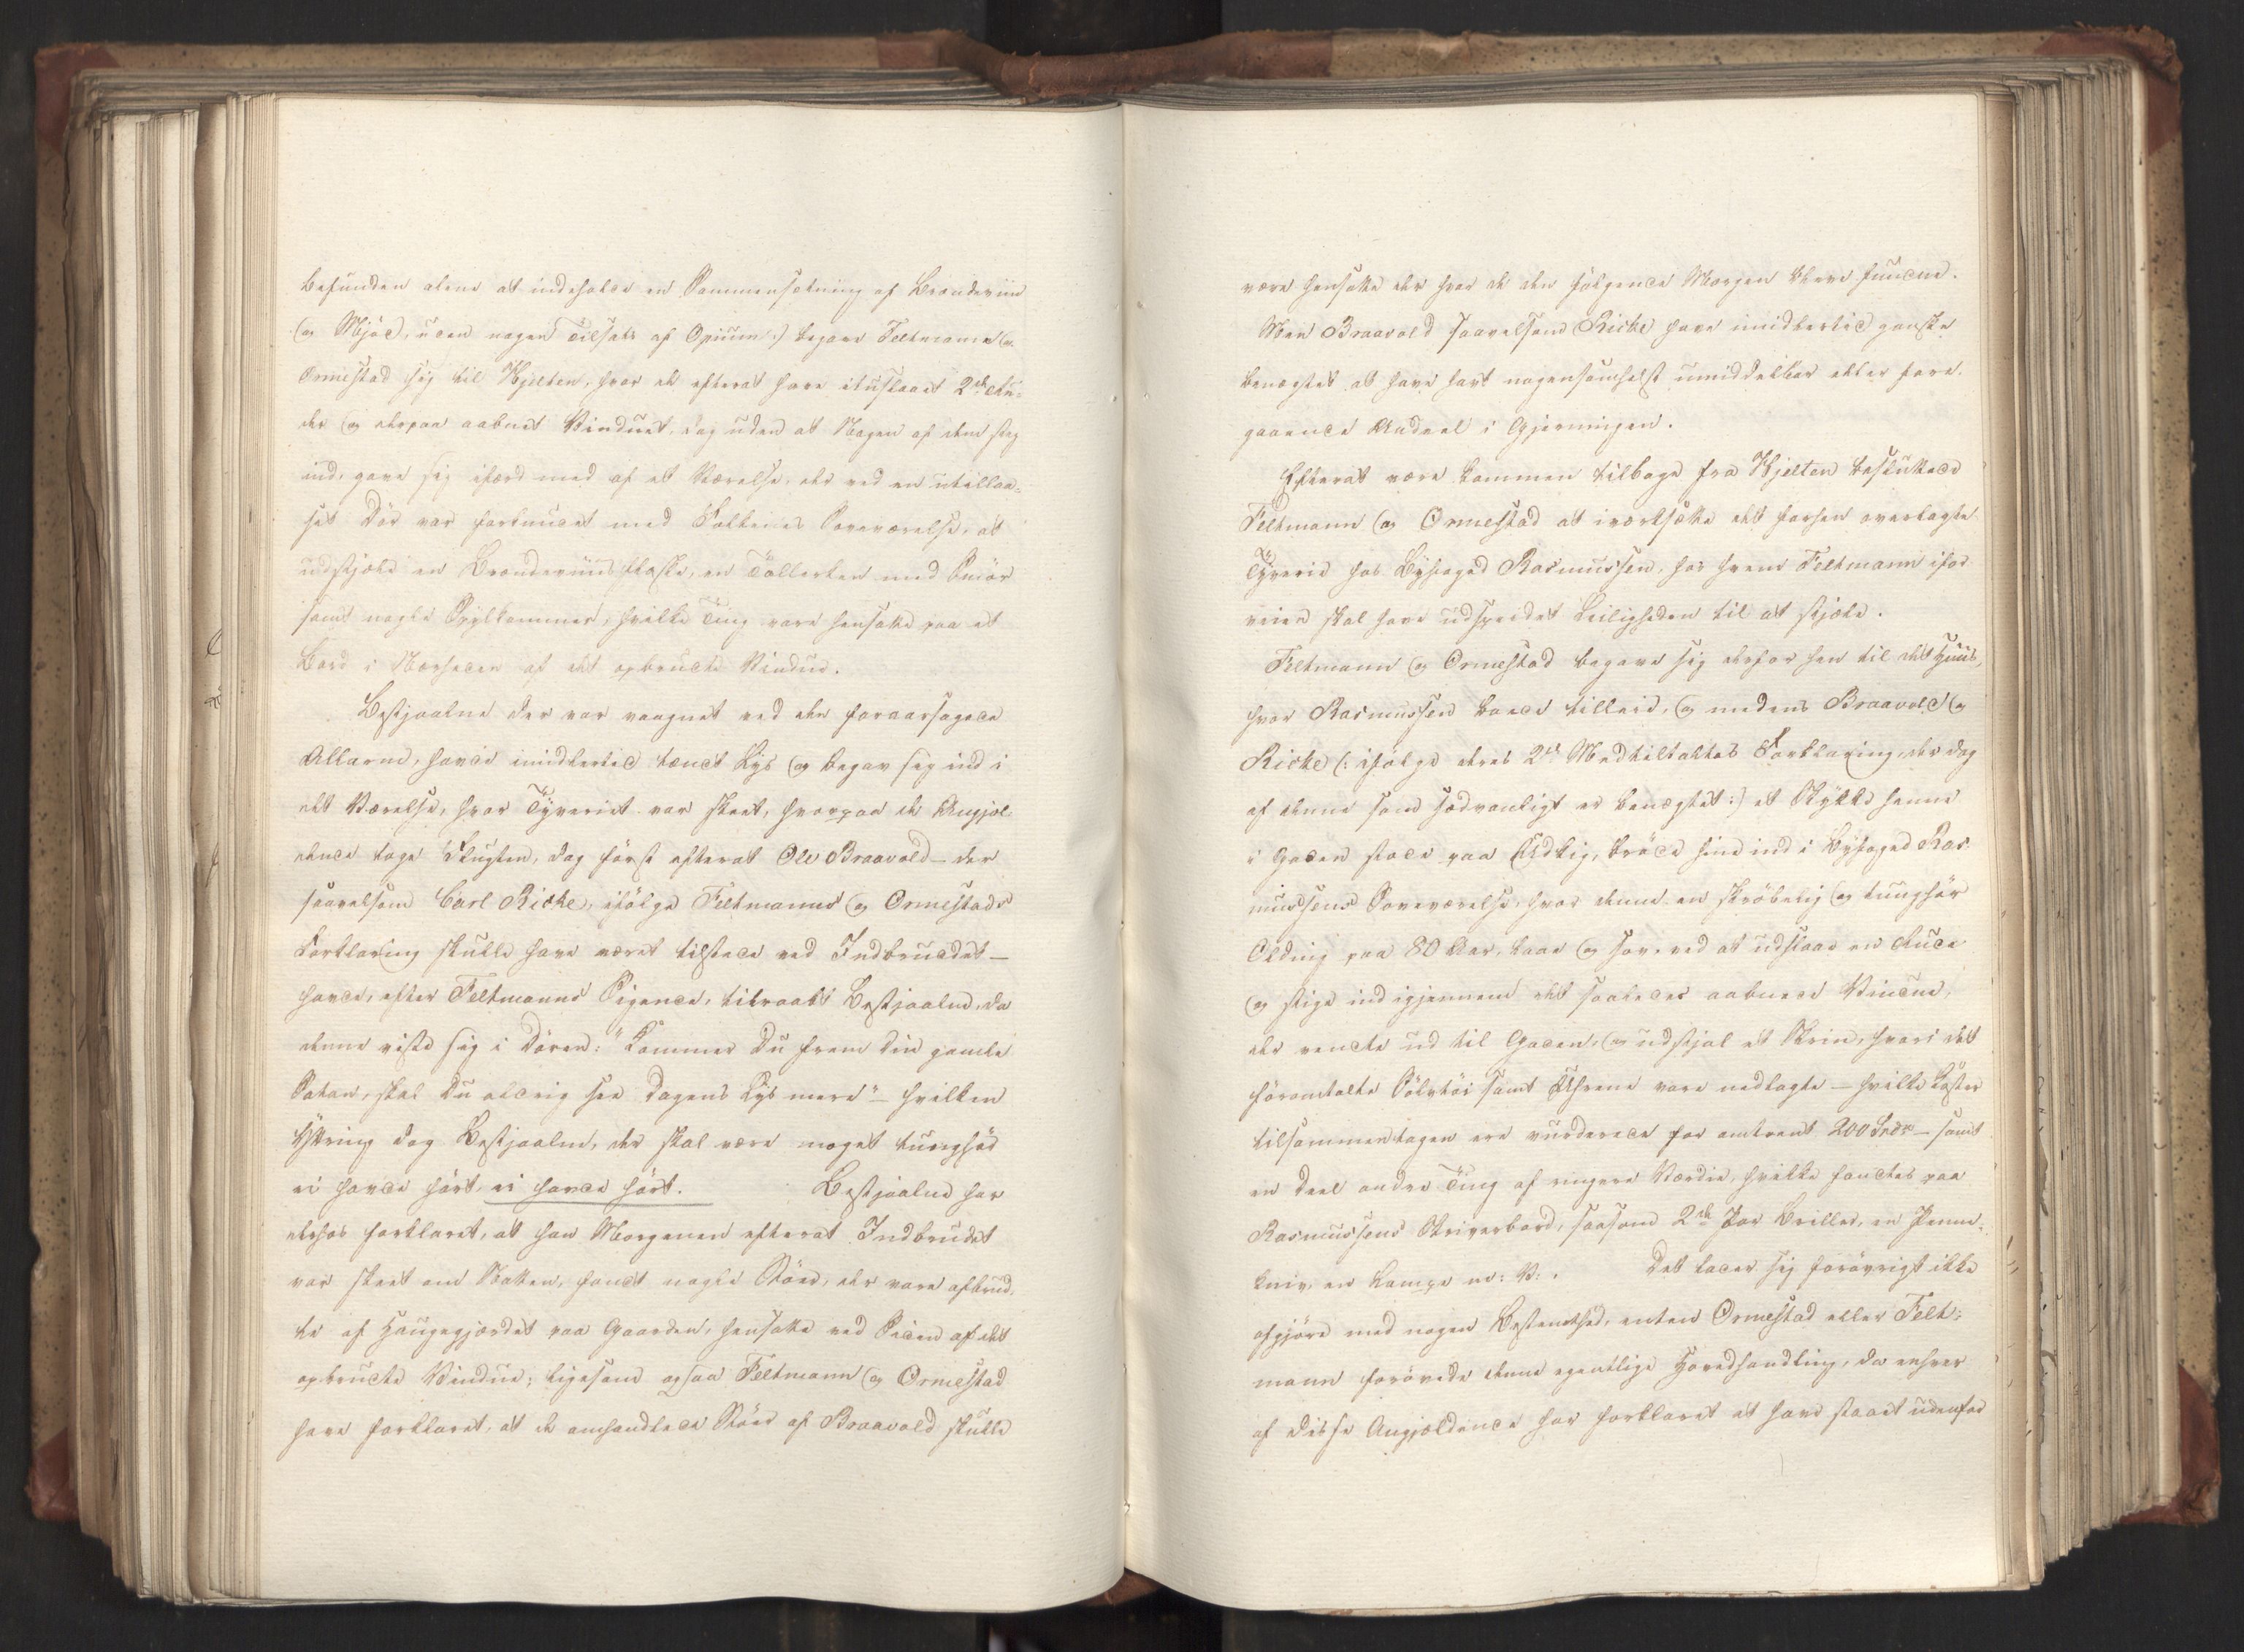 befunden alene at indeholde en Sammensætning af Brændeviin
og Mjød, uden nogen Tilsats af Opium:/ begave Feltmann og
Ormestad sig til Kjelten, hvor de efterat have ituslaaet 2de Ru-
der og derpaa aabnet Vinduet, dog uden at Nogen af dem steg
ind, gave sig ifærd med af et Værelse, der ved en utillaa-
set Dør var forbundet med Folkenes Soveværelse, at
udstjæle en Brændeviinsflaske, en Tallerken med Smør
samt nogle Spylkommer, hvilke Ting vare hensatte paa et
Bord i Nærheden af det opbrudte Vindue.
Bestjaalne der var vaagnet ved den foraarsagede
Allarm, havde imidlertid tændt Lys og begav sig ind i
det Værelse, hvor Tyveriet var skeet, hvorpaa de Angjæl-
dende toge Flugten, dog først efterat Ole Braavold – der
saavelsom Carl Ricke, ifølge Feltmanns og Ormestads
Forklaring skulle have været tilstede ved Indbruddet –
havde, efter Feltmanns Sigende, tilraabt Bestjaalne, da
denne viste sig i Døren: "Kommer Du frem din gamle
Satan, skal Du aldrig see Dagens Lys mere" – hvilken
Yttring dog Bestjaalne, der skal være noget tunghør
ei havde hørt. ei havde hørt. Bestjaalne har
derhos forklaret, at han Morgenen efterat Indbrudet
var skeet om Natten, fandt nogle Stører, der vare afbrud-
te af Haugegjærdet paa Gaarden, hensatte ved Siden af det
opbrudte Vindue; ligesom ogsaa Feltmann og Ormestad
have forklaret, at de omhandlede Stører af Braavold skulle
være hensatte der hvor de den følgende Morgen bleve fundne.
Men Braavold saavelsom Ricke have imidlertid ganske
benægtet at have havt nogensomhelst umiddelbar eller fore-
gaaende Andeel i Gjerningen.
Efterat være kommen tilbage fra Kjelten besluttede
Feltmann og Ormestad at iværksætte det forhen overlagte
Tyverie hos Byfoged Rasmussen, hos hvem Feltmann ifor-
veien skal have udspeidet Leiligheden til at stjæle.
Feltmann og Ormestad begave sig derfor hen til det Huus,
hvor Rasmussen boede tilleie, og medens Braavold og
Ricke (: ifølge deres 2de Medtiltaltes Forklaring, der dog
af denne som sædvanligt er benægtet:) et Stykke henne
i Gaden stode paa Udkig, brøde hine ind i Byfoged Ras-
mussens Soveværelse, hvor denne en skrøbelig og tunghør
Olding paa 80 Aar, laae og sov, ved at udslaae en Rude
og stige ind igjennem det saaledes aabnede Vindue,
der vendte ud til Gaden, og udstjal et Skrin, hvori det
føromtalte Sølvtøi samt Uhrene vare nedlagte – hvilke Koster
tilsammentagen ere vurderede for omtrent 200 Spdr – samt
en Deel andre Ting af ringere Værdie, hvilke fandtes paa
Rasmussens Skriverbord, saasom 2de Par Briller, en Penne-
kniv, en Lampe m: V: . Det lader sig forøvrigt ikke
afgjøre med nogen Bestemthed, enten Ormestad eller Felt-
mann forøvede denne egentlige Hovedhandling, da enhver
af disse Angjældende har forklaret at have staaet udenfor